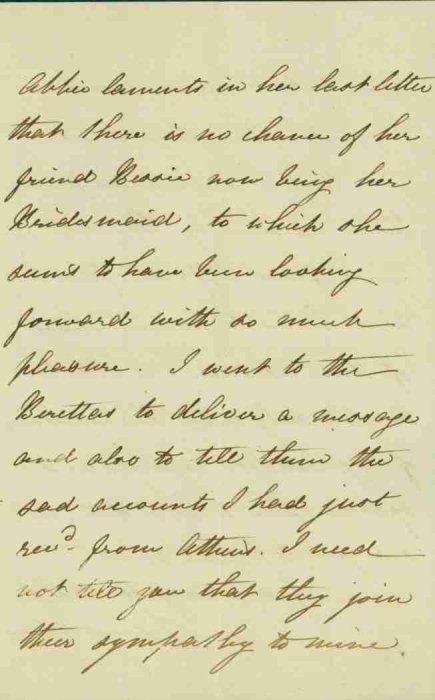 Abbie laments in her last letter
that there is no chance of her
friend Bessie now being her
Bridesmaid, to which she
seems to have been looking
forward with so much
pleasure. I went to the
Berettas to deliver a message
and also to tell them the
sad accounts I had just
recd. from Athens. I need
not tell you that they join
their sympathy to mine.